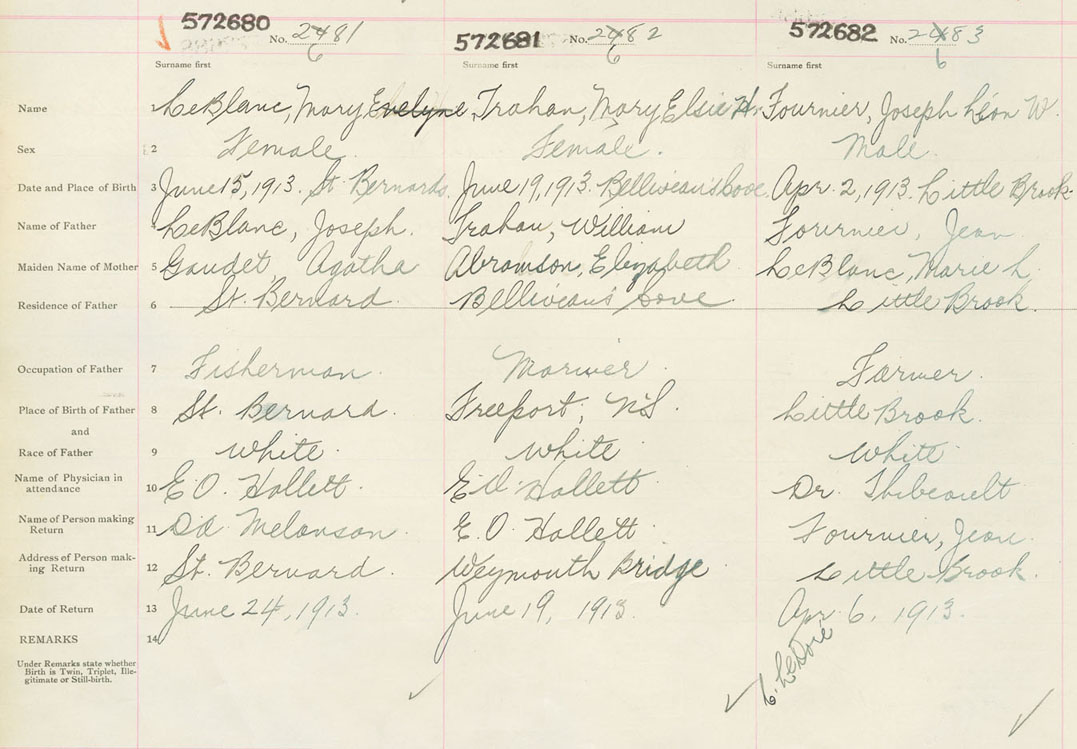 572680 No. 2481 6 572681 No. 2482 6 572682 No. 2483 6
Surname first Surname first Surname first
Name 1 LeBlanc, Mary Evelyne Trahan, Mary Elsie Fournier, Joseph Léon W.
Sex 2 Female. Female. Male.
Date and Place of Birth 3 June 15, 1913. St. Bernards. June 19, 1913. Belliveau's Cove. Apr. 2, 1913. Little Brook.
Name of Father 4 LeBlanc, Joseph. Trahan, William Fournier, Jean
Maiden Name of Mother 5 Gaudet, Agatha Abramson, Elizabeth LeBlanc, Marie L.
Residence of Father 6 St. Bernard. Belliveau's Cove. Little Brook.
Occupation of Father 7 Fisherman. Mariner. Farmer.
Place of Birth of Father 8 St. Bernard. Freeport, NS. Little Brook.
and
Race of Father 9 White. White White
Name of Physician in
attendance 10 E O. Hallett. E O. Hallett Dr. Thibeault
Name of Person making
Return 11 Melanson. E. O. Hallett Fournier, Jean.
Address of Person mak-
ing Return 12 St. Bernard. Weymouth Bridge Little Brook.
Date of Return 13 June 24, 1913. June 19, 1913. Apr. 6, 1913.
REMARKS 14
Under Remarks state whether
Birth is Twin, Triplet, Ille-
gitimate or Still-birth.